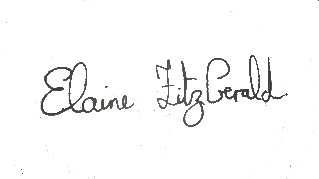 Elaine FitzGerald